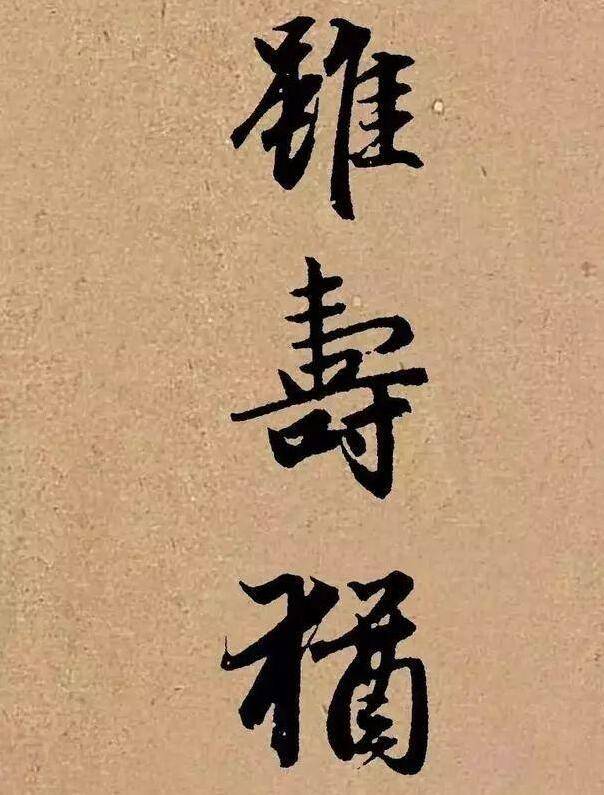 雖壽猶